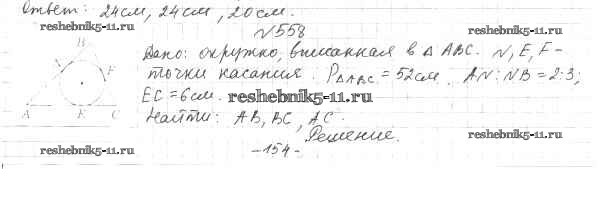 Ответ: 24см, 24см, 20см.
reshebnik5-11.ru
reshebnik5-11.ru
N558
Дано: окружно, вписанная в △ ABC. N, E, F-
точки касания. P△ABC = 52см. AN:NB = 2:3;
EC = 6см. reshebnik5-11.ru
Найти: AB, BC, AC.
Решение.
B
N
F
A E C
reshebnik5-11.ru
-154-
reshebnik5-11.ru